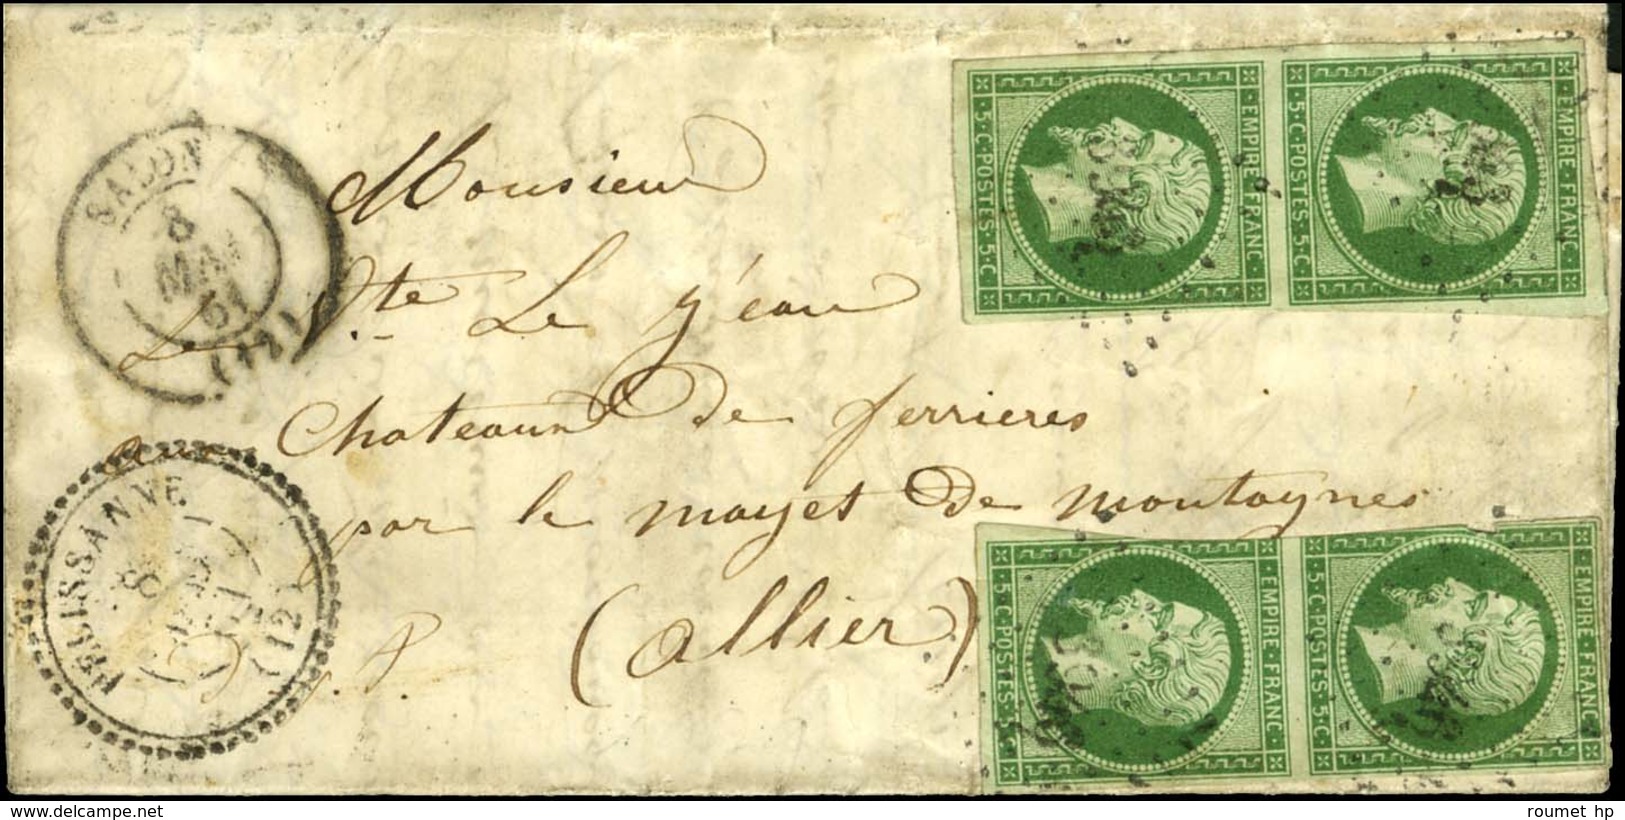 SALON
8
MAI
61
(12)
Monsieur
Le Vte Le Jeau
Chateau de ferrieres
par le mayet de montagnes
(allier)
PELISSANNE
8
61
(12)
EMPIRE · FRANC · 5 · C · POSTES · 5 · C ·
EMPIRE · FRANC · 5 · C · POSTES · 5 · C ·
EMPIRE · FRANC · 5 · C · POSTES · 5 · C ·
EMPIRE · FRANC · 5 · C · POSTES · 5 · C ·
www.delcampe.net
roumet hp